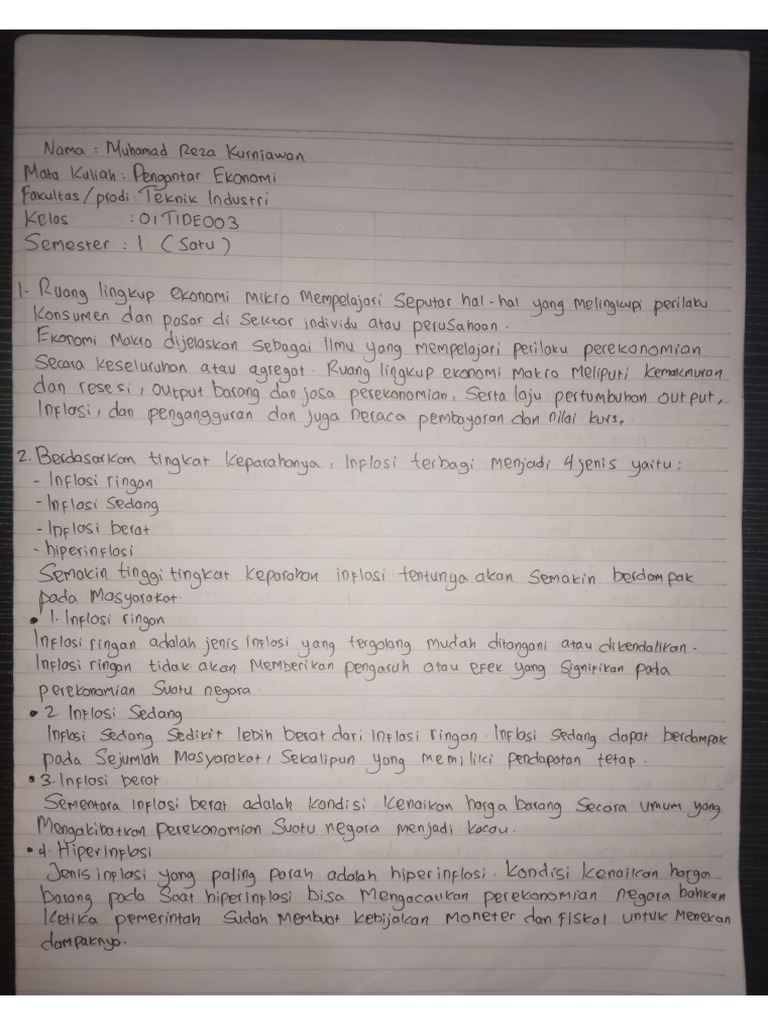 Nama : Muhamad Reza Kurniawan
Mata Kuliah : Pengantar Ekonomi
Fakultas/prodi : Teknik Industri
Kelas : 01TIDE003
Semester : 1 (Satu)
1. Ruang lingkup ekonomi Mikro Mempelajari Seputar hal-hal yang melingkupi perilaku
Konsumen dan pasar di Sektor individu atau perusahaan.
Ekonomi Makro dijelaskan Sebagai Ilmu yang mempelajari perilaku perekonomian
Secara keseluruhan atau agregat. Ruang lingkup ekonomi makro meliputi kemakmuran
dan resesi, output barang dan jasa perekonomian, Serta laju pertumbuhan output,
Inflasi, dan pengangguran dan juga neraca pembayaran dan nilai kurs.
2. Berdasarkan tingkat keparahanya, Inflasi terbagi menjadi 4 jenis yaitu :
- Inflasi ringan
- Inflasi Sedang
- Inflasi berat
- hiperinflasi
Semakin tinggi tingkat keparahan inflasi tentunya akan Semakin berdampak
pada Masyarakat.
• 1. Inflasi ringan
Inflasi ringan adalah jenis inflasi yang tergolong mudah ditangani atau dikendalikan.
Inflasi ringan tidak akan Memberikan pengaruh atau efek yang Signifikan pada
perekonomian Suatu negara.
• 2. Inflasi Sedang
Inflasi Sedang Sedikit lebih berat dari inflasi ringan. Inflasi Sedang dapat berdampak
pada Sejumlah Masyarakat, Sekalipun yang memiliki pendapatan tetap.
• 3. Inflasi berat
Sementara inflasi berat adalah kondisi Kenaikan harga barang Secara umum yang
Mengakibatkan perekonomian Suatu negara menjadi kacau.
• 4. Hiperinflasi
Jenis inflasi yang paling parah adalah hiperinflasi. Kondisi kenaikan harga
barang pada Saat hiperinflasi bisa Mengacaukan perekonomian negara bahkan
Ketika pemerintah Sudah Membuat kebijakan Moneter dan fiskal untuk Menekan
dampaknya.